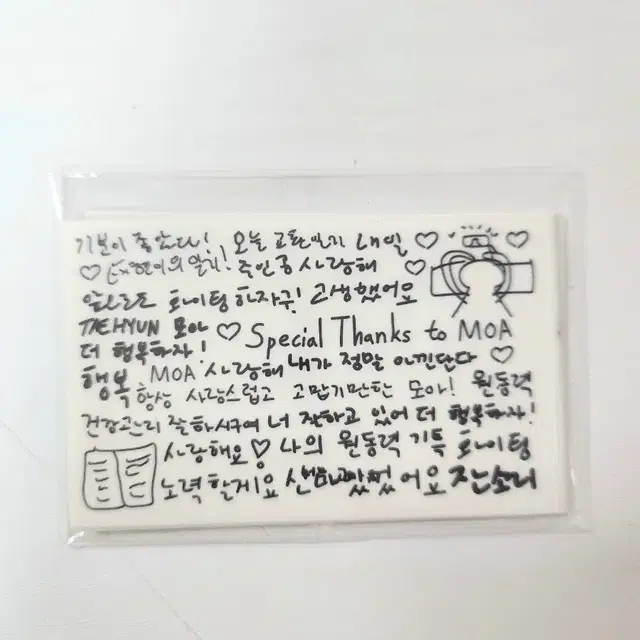 기분이 좋았다! 오늘 고된 내일 ♡ ♡
♡ 일기! 주인공 사랑해 ♡
앞으로도 화이팅 하자구! 고생했어요
TAEHYUN 모아 ♡ Special Thanks to MOA
더 행복하자! MOA 사랑해 내가 정말 아낀단다 ♡
행복 항상 사랑스럽고 고맙기만한 모아! 원동력
건강관리 잘하시구여 너 잘하고 있어 더 행복하자!
사랑해요♡ 나의 원동력 기특 화이팅
노력할게요 어요 잔소리